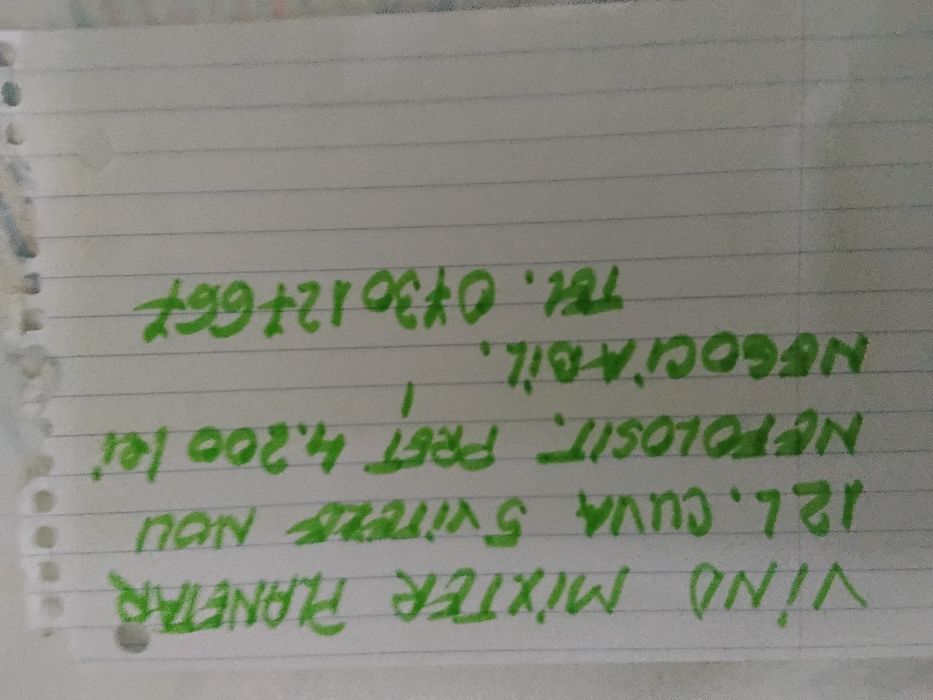 VIND MIXTER PLANETAR
12L. CUVA 5 VITEZE NOU
NEFOLOSIT. PREȚ 4.200 lei
NEGOCIABIL.
TEL. 0730127667